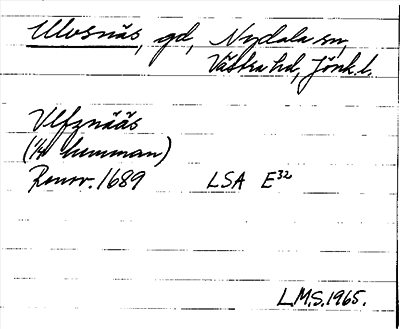 Ulvsnäs, gd, Nydala sn,
Västra hd, Jönk.l.
Ulfznääs
(1/4 hemman)
Renov. 1689 LSA E³²
L.M.S.1965.